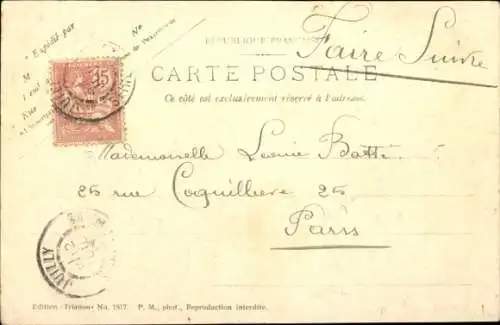 Expédié par
N°
RÉPUBLIQUE FRANÇAISE
Faire Suivre
CARTE POSTALE
Ce côté est exclusivement réservé à l'adresse.
15
Mademoiselle Leonie Batté
25 rue Coquillière 25
Paris
JUILLY
Edition «Trianon» No. 1817. P. M., phot., Reproduction interdite.